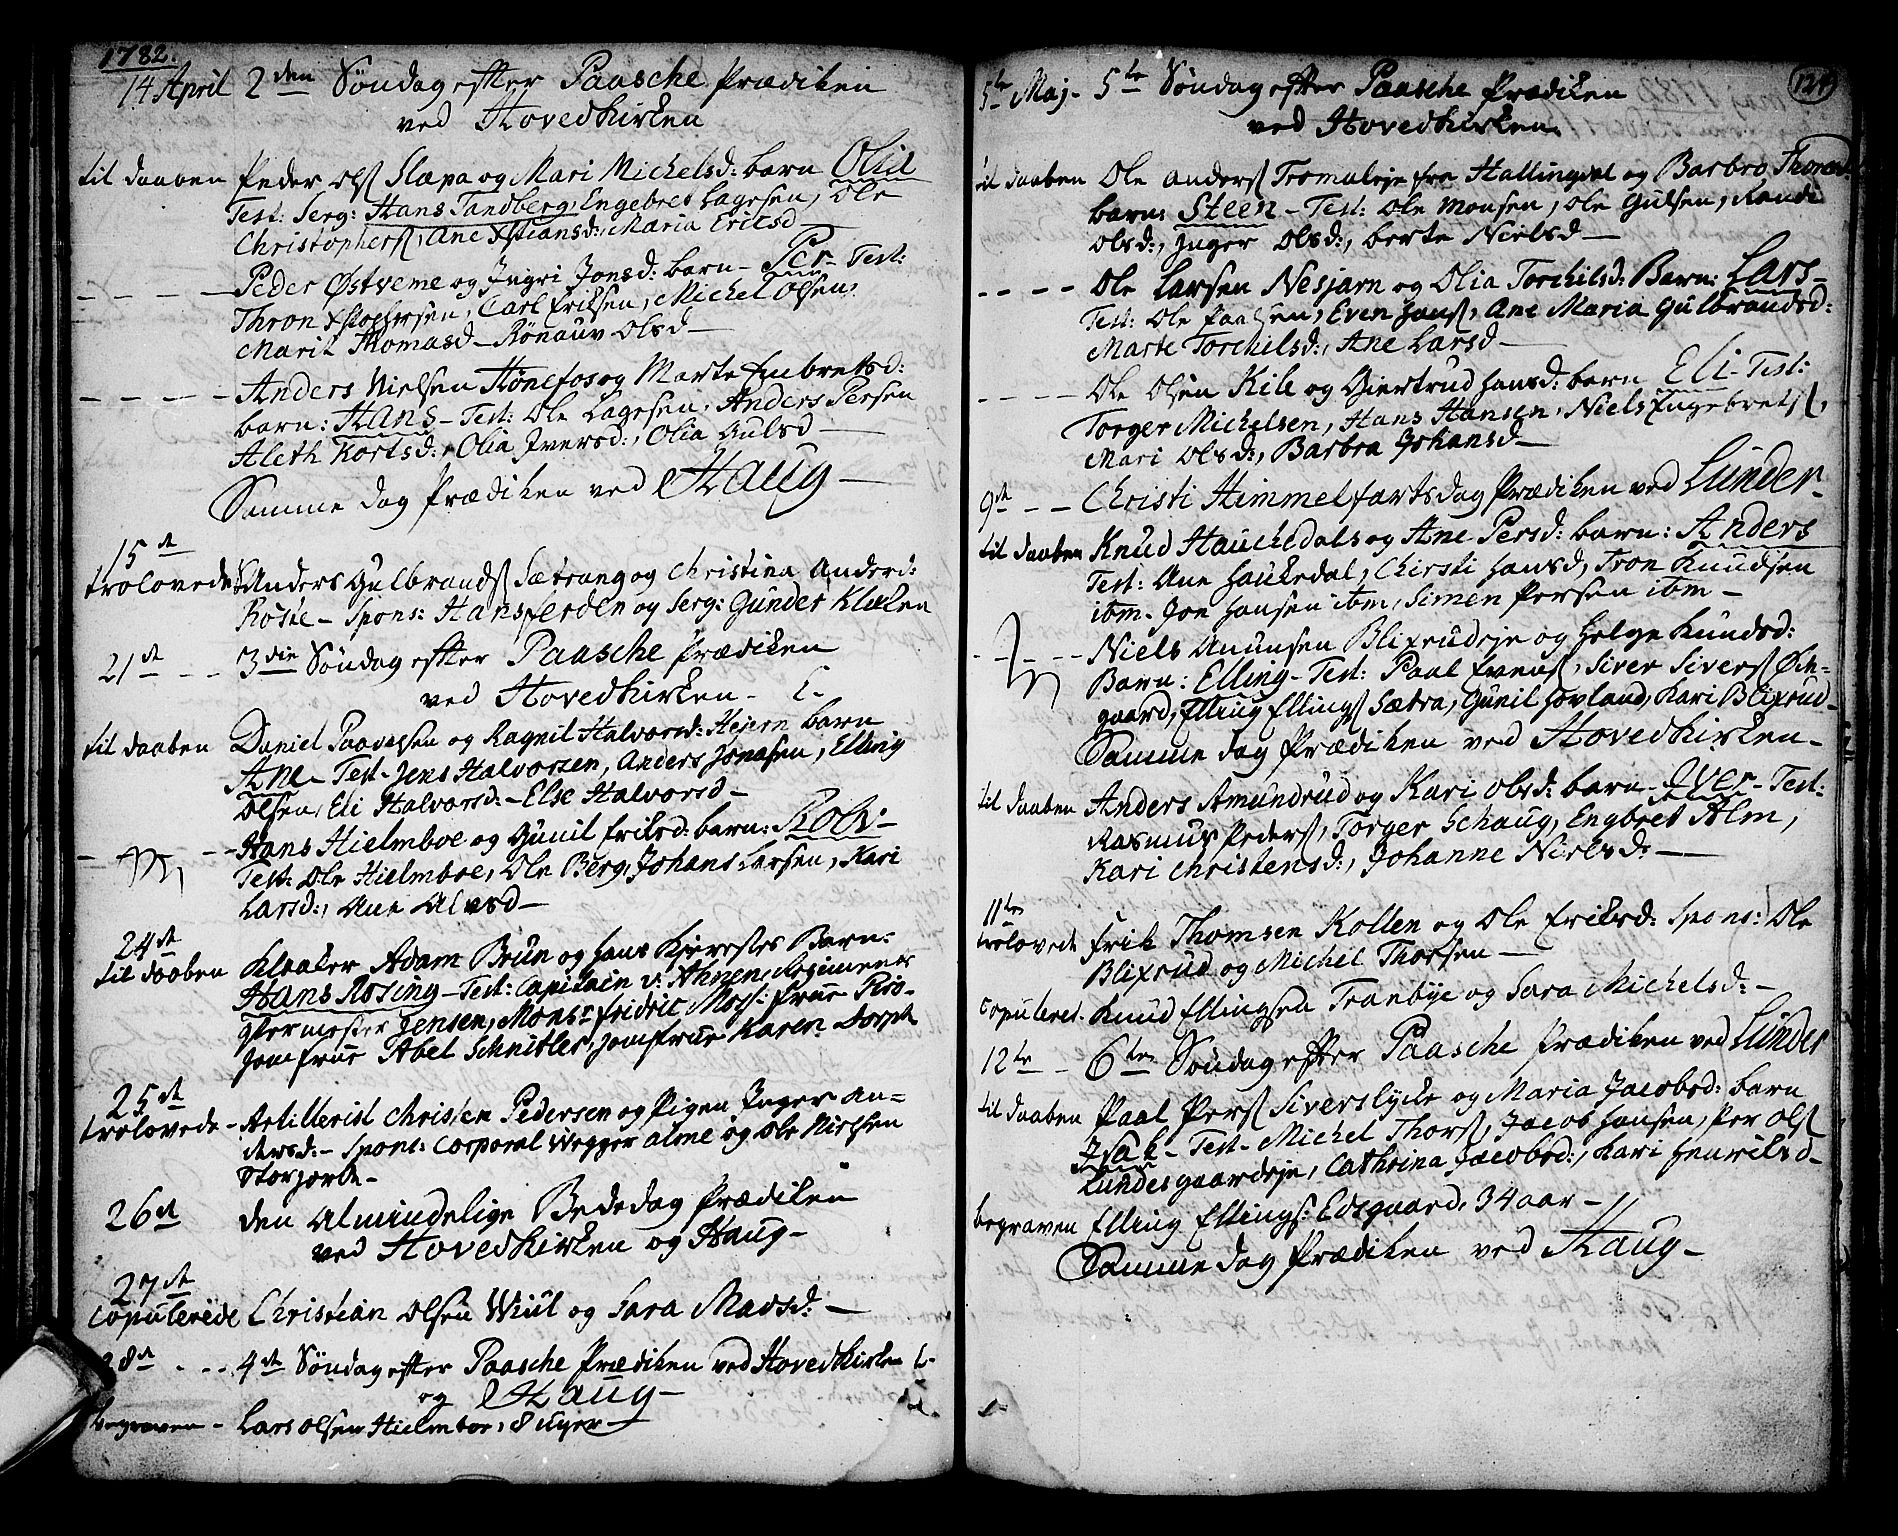 1782.
14 April 2den Søndag efter Paasche Prædiken
ved Hovedkirken
til daaben Peder Ols Slæpa og Mari Michelsd: barn Olia
Test: Serg: Hans Tandberg, Engebret Lagesen, Ole
Christophers, Ane Xstiansd:, Maria Ericsd
Peder Østveme og Ingri Jonsd: barn - Per - Test:
Thron Xstophersen, Carl Eriksen, Michel Olsen,
Marit Thomasd - Rønauv Olsd
Anders Nielsen Hønefos og Marte Embretsd:
barn: Hans - Test: Ole Lagesen, Anders Persen
Aleth Kortsd:, Olia Iversd:, Olia Gulsd
Samme dag Prædiken ved Haug
15de
trolovede Anders Gulbrands Sætrang og Christina Andersd:
Koste - Spons: Hans Jerden og Serg: Gunder Klæken
21de 3die Søndag efter Paasche Prædiken
ved Hovedkirken -
til daaben Daniel Paavesen og Ragnil Halvorsd: Hejern barn
Ane - Test - Jens Halvorsen, Anders Jonasen, Elling
Olsen, Eli Halvorsd: - Else Halvorsd -
Hans Hielmboe og Gunil Eriksd: barn: Rolv -
Test: Ole Hielmboe, Ole Berg, Johans Larsen, Kari
Larsd:, Ane Alvsd -
24de
til daaben Klokker Adam Brun og Hans Kjerestes Barn:
Hans Rosing - Test: Capitain v: Ahnen, Regiments
qvermester Jensen, Monsr Fridric Mos: Frue
Jomfrue Abel Schnitler, Jomfrue Karen Dorph
25de
trolovede - Artillerist Christen Pedersen og Pigen Inger An=
dersd: - Spons: Corporal Wegger Alme og Ole Nielsen
Storjorde -
26de den Almindelige Bededag Prædiken
ved Hovedkirken og Haug -
27de
Copulerede Christian Olsen Wiul og Sara Madsd: -
28de 4de Søndag efter Paasche Prædiken ved Hovedkirken
og Haug -
begraven - Lars Olsen Hielmboe, 8 uger
124
5te Maj - 5te Søndag efter Paasche Prædiken
ved Hovedkirken
til daaben Ole Anders Tromaleje fra Hallingdal og Barbro Thoresd
barn: Steen - Test: Ole Monsen, Ole Gulsen, Randi
Olsd:, Inger Olsd:, Berte Nielsd
Ole Larsen Nesjarn og Olia Torchilsd: Barn: Lars -
Test: Ole Paalsen, Even Hans, Ane Maria Gulbrandsd:
Marte Torchilsd:, Ane Larsd
Ole Olsen Kile og Gjertrud Hansd: barn Eli - Test:
Torger Michelsen, Hans Hansen, Niels Engebrets,
Mari Olsd:, Barbra Johansd
9de Christi Himmelfartsdag Prædiken ved Lunder -
til daaben Knud Hauchedals og Ane Persd: barn: Anders
Test: Ane Haukedal, Chirsti Hansd, Tron Knudsen
ibm. Jon Hansen ibm, Simen Persen ibm -
Niels Anunsen Blixrudeje og Helge Knudsd:
Barn: Elling - Test: Paal Evens, Siver Sivers Øde-
gaard, Elling Ellings Sætra, Gunil Hovland, Kari Blixrud -
Samme dag Prædiken ved Hovedkirken -
til daaben Anders Amundrud og Kari Olsd: barn - Iver - Test:
Rasmus Peders, Torger Schaug, Engbret Alm,
Kari Christensd:, Johanne Nielsd:
11te
trolovede Erik Thomsen Kollen og Ole Eriksd: Spons: Ole
Blixrud og Michel Thorsen
Copuleret. Knud Ellingsen Tranbye og Sara Michelsd: -
12te 6te Søndag efter Paasche Prædiken ved Lunder
til daaben Paal Pers Siverslycke og Maria Jacobsd: barn
Isak - Test - Michel Thors, Jacob Hansen, Per Ols
Lundesgaardeje, Cathrina Jacobsd:, Kari Henriksd -
begraven Elling Ellings: Edsgaard, 34 aar -
Samme dag Prædiken ved Haug -